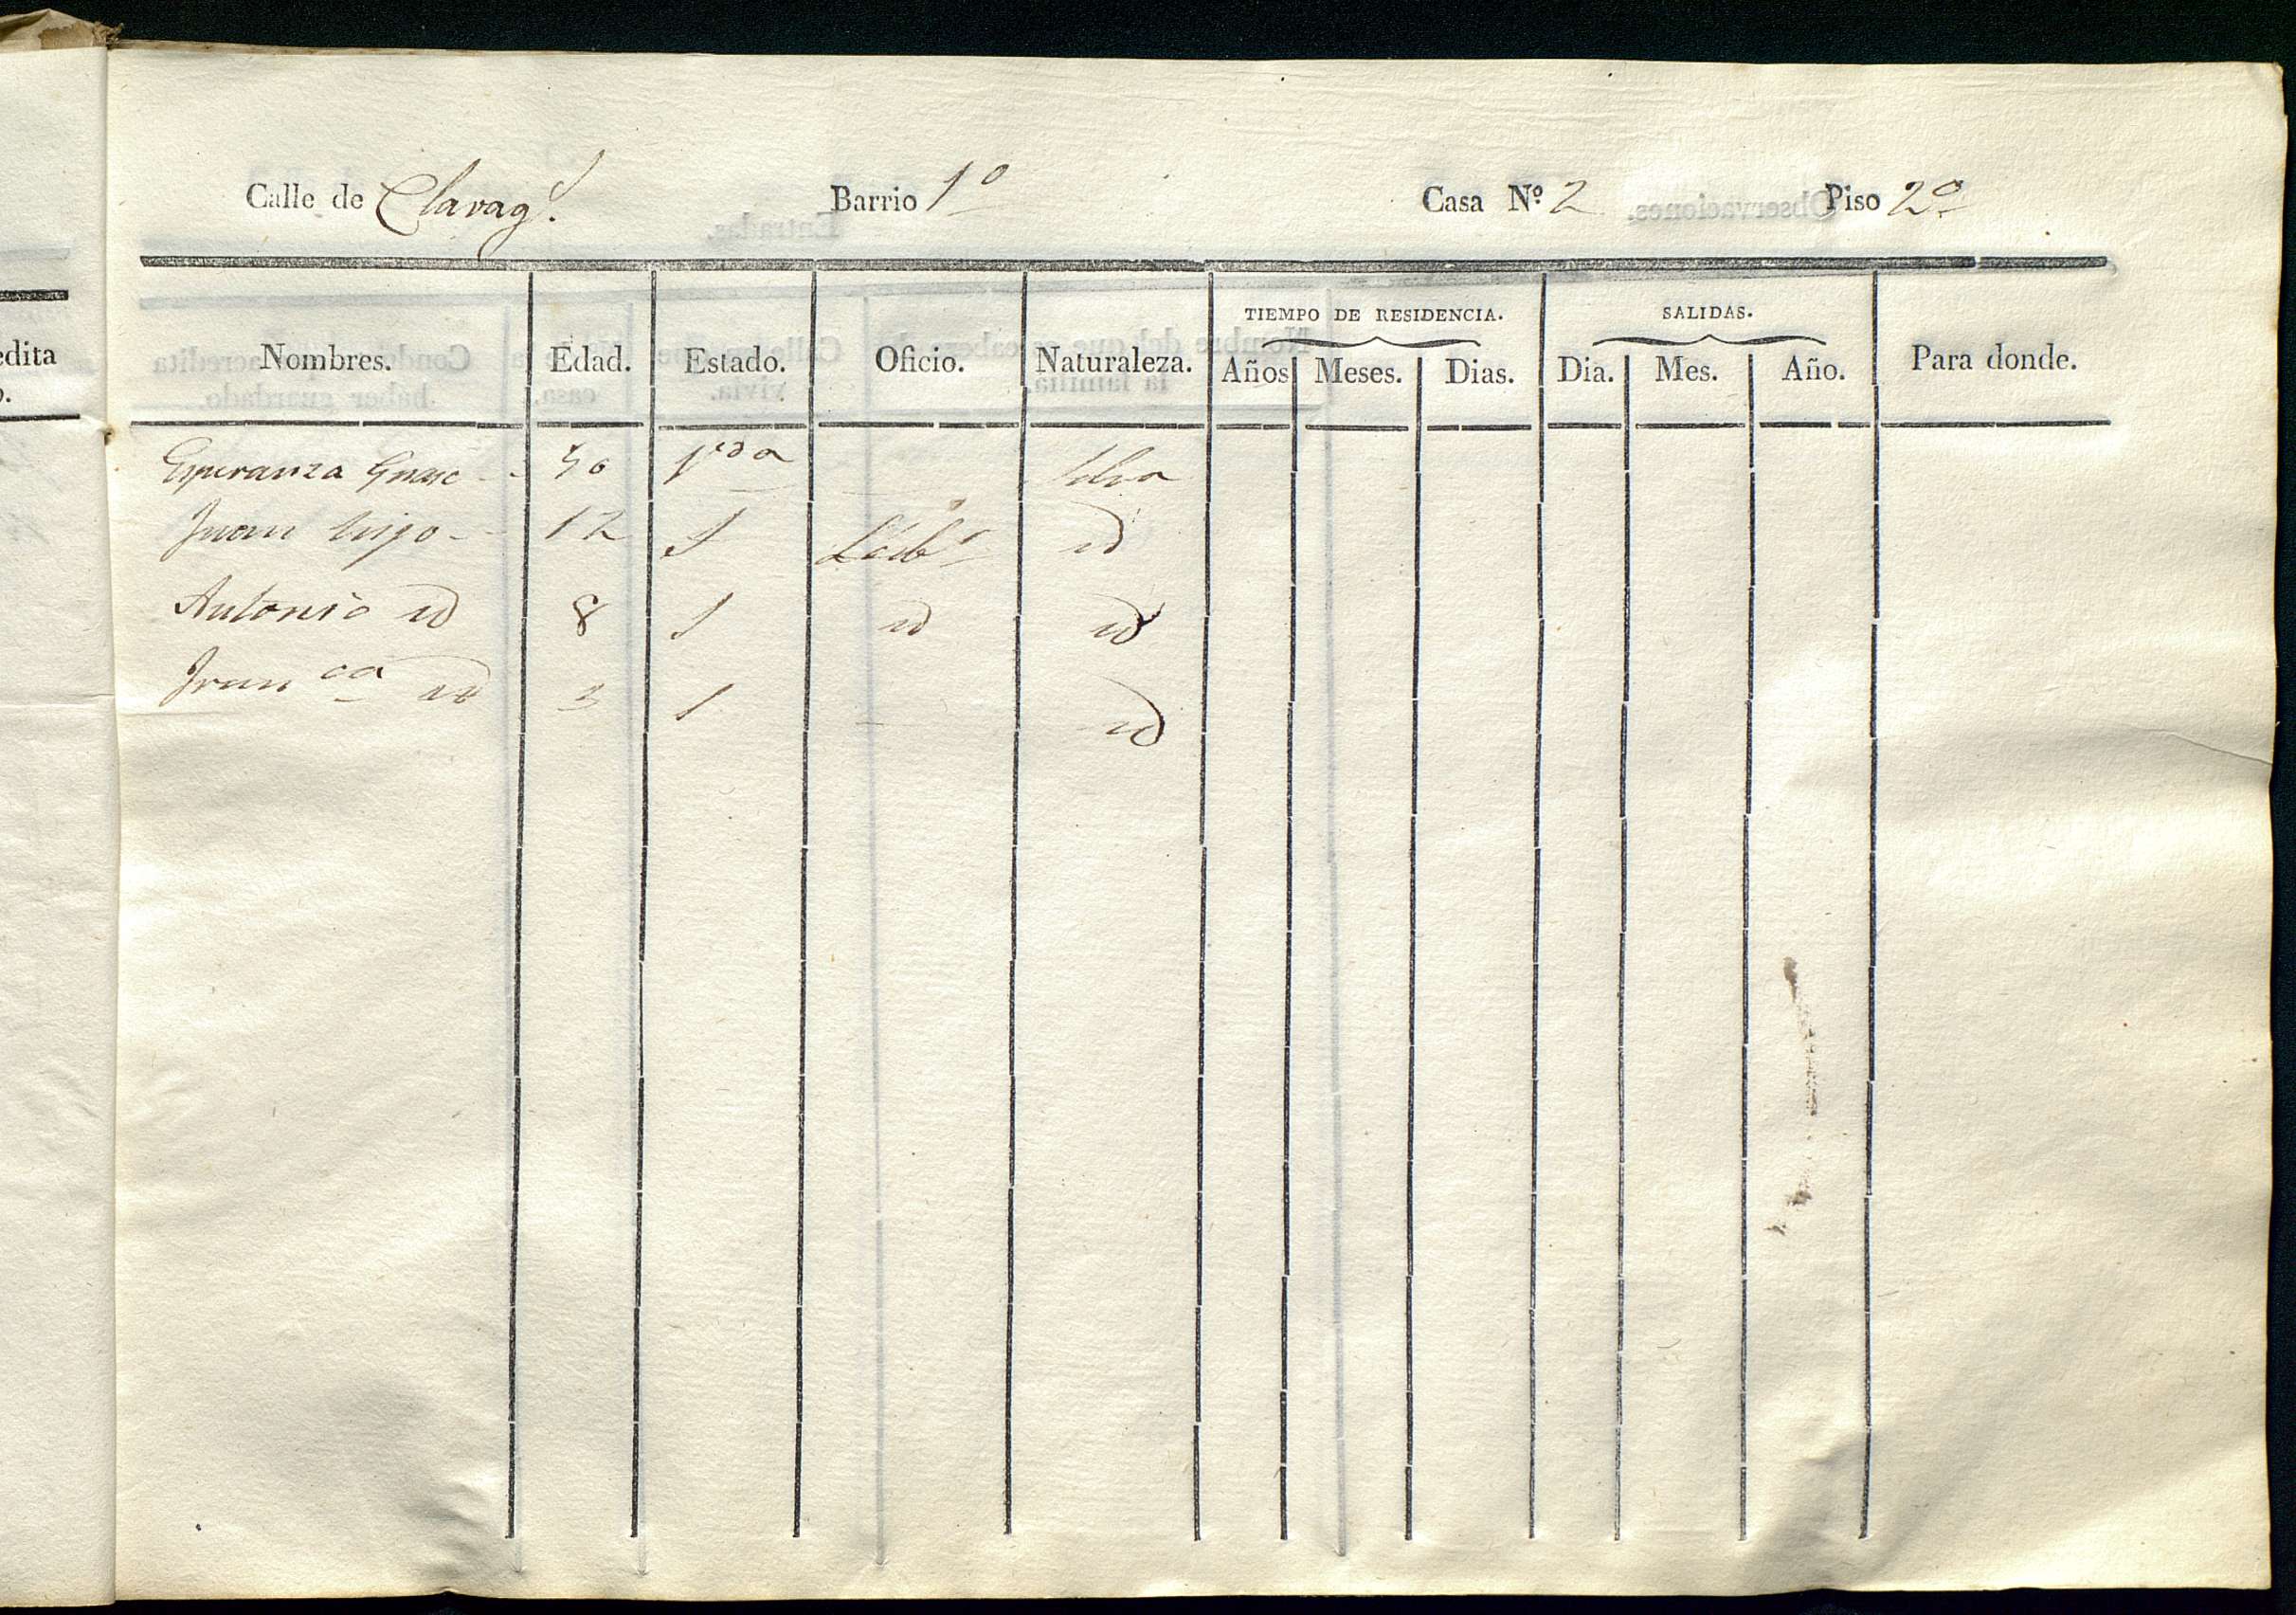 Calle de Clavag.l Barrio 1º Casa Nº 2 Piso 2º
TIEMPO DE RESIDENCIA. SALIDAS.
Nombres. Edad. Estado. Oficio. Naturaleza. Años Meses. Dias. Dia. Mes. Año. Para donde.
Esperanza 50 Vda
Juan hijo 12 S Labr id
Antonio id 8 S id id
Franca id 3 S id
edita